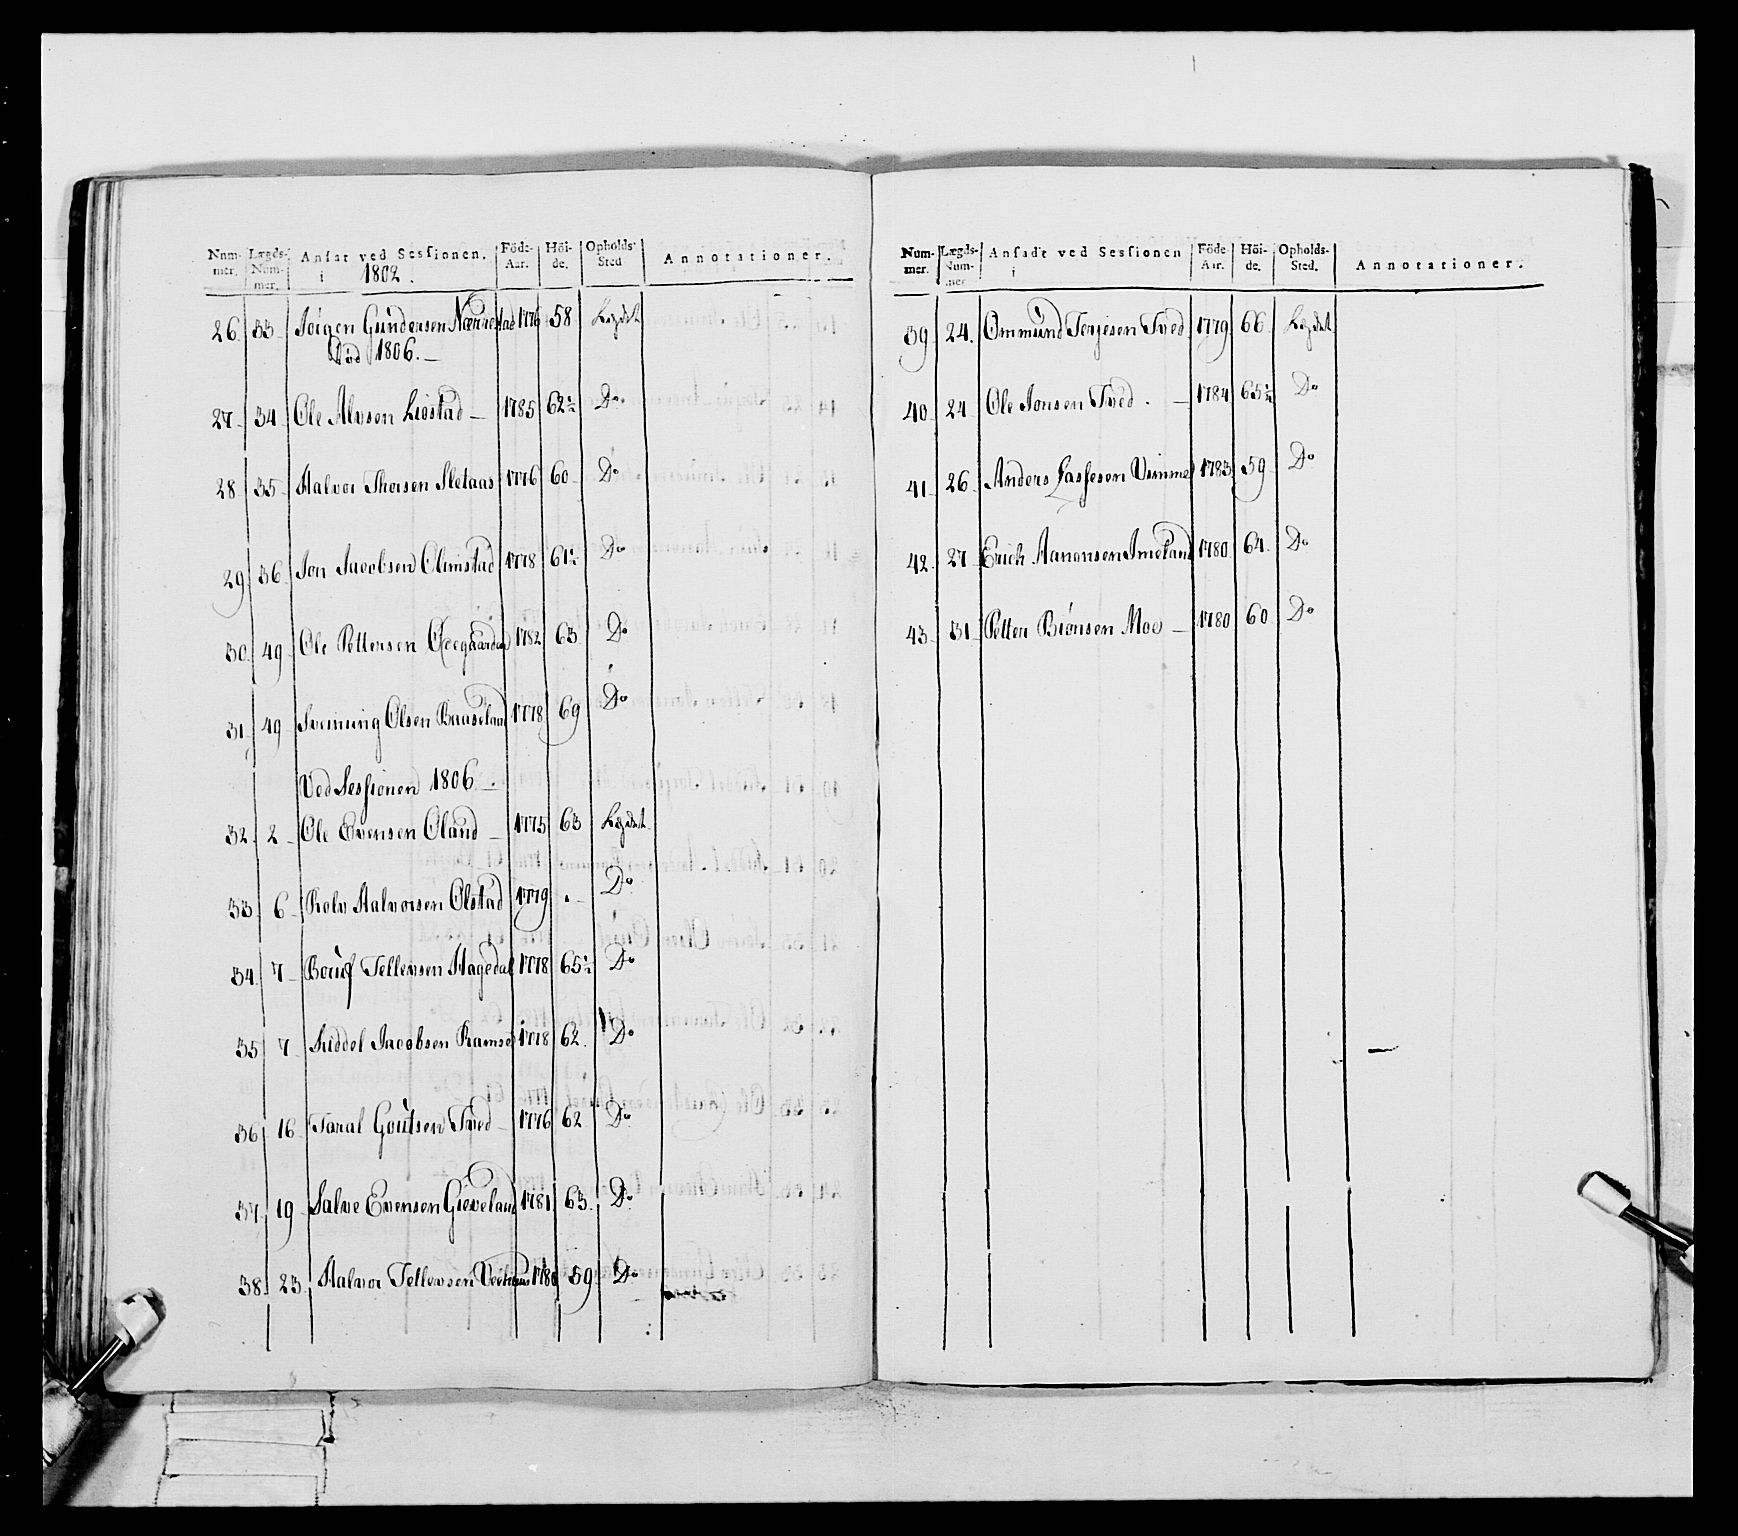 Num-mer. Lægds-Num-mer. Ansat ved Sessionen. i 1802. Föde-Aar. Höi-de. Opholds-Sted Annotationer.
26. 33. Jörgen Gundersen Nærrestad 1776 58 Lægdet
Död 1806.
27. 34. Ole Alvsen Liestad 1785 62½ Do
28. 35. Halvor Thorsen Sletaas 1776 60 Do
29. 36. Jon Jacobsen Olimstad 1778 61½ Do
30. 49. Ole Pettersen 1782 63. Do
31. 49. Svenning Olsen 1778 69 Do
Ved Sessionen 1806.
32. 2. Ole Evensen Oland 1775 63 Lægdet
33. 6. Rolv Halvorsen Olstad 1779 . Do
34. 7. Boruf Tellevsen Hagedal 1778 65½ Do
35. 7. Siddel Jacobsen Ramse 1778 62. Do
36. 16. Taral Goutsen Tved 1776 62 Do
37. 19. Salve Evensen Gieveland 1781 63. Do
38. 23. Halvor Tellevsen 178 59 Do
Num-mer. Lægds-Num-mer Ansadt ved Sessionen i Föde Aar. Höi-de. Opholds-Sted. Annotationer.
39. 24. Ommund Terjesen Tved 1779 66 Lægdet
40. 24 Ole Jonsen Tved. 1784 65½ Do
41. 26. Anders Lassesen 1783 59 Do
42. 27 Erich Aanonsen Imeland 1780 64. Do
43. 31. Petter Biönsen Moe 1780 60 Do